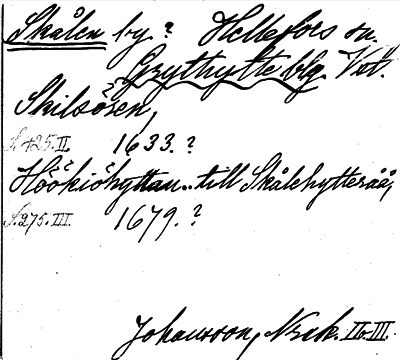 Skålen by? Hellefors sn.
Grythytte blg. Vst.
Skilsåsen,
s. 425. II. 1633.?
Höökiöhyttan.. till Skålehytteråå,
s. 275. III. 1679.?
Johansson, Norak. II-III.